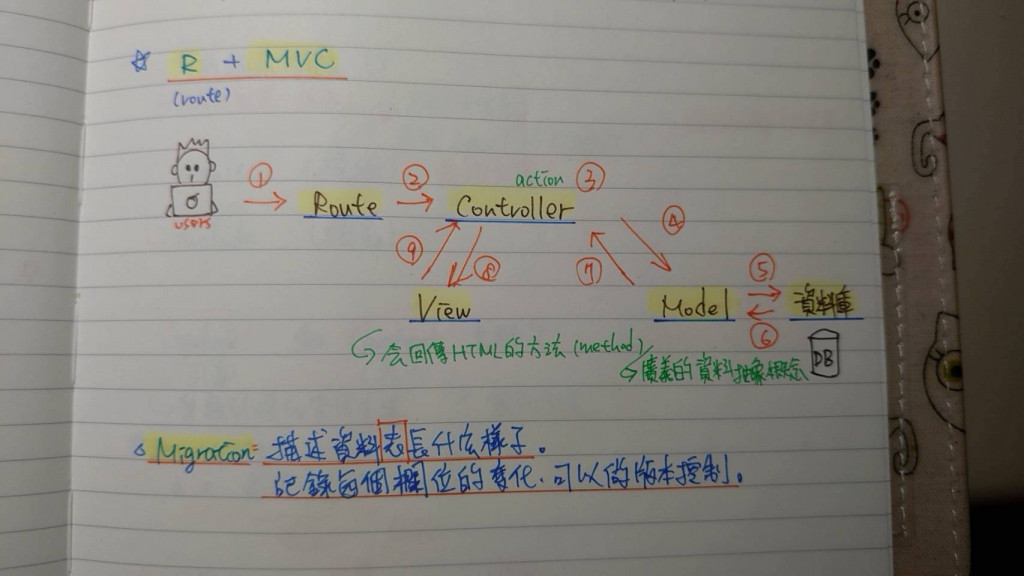 ☆ R + MVC
(route)
action ③
① ②
Route Controller
users
④
⑨ ⑧ ⑦ ⑤
View Model 資料庫
⑥
會回傳HTML的方法 (method)
DB
廣義的資料抽象概念
Migration: 描述資料表長什么樣子。
紀錄每個欄位的變化.可以做版本控制。